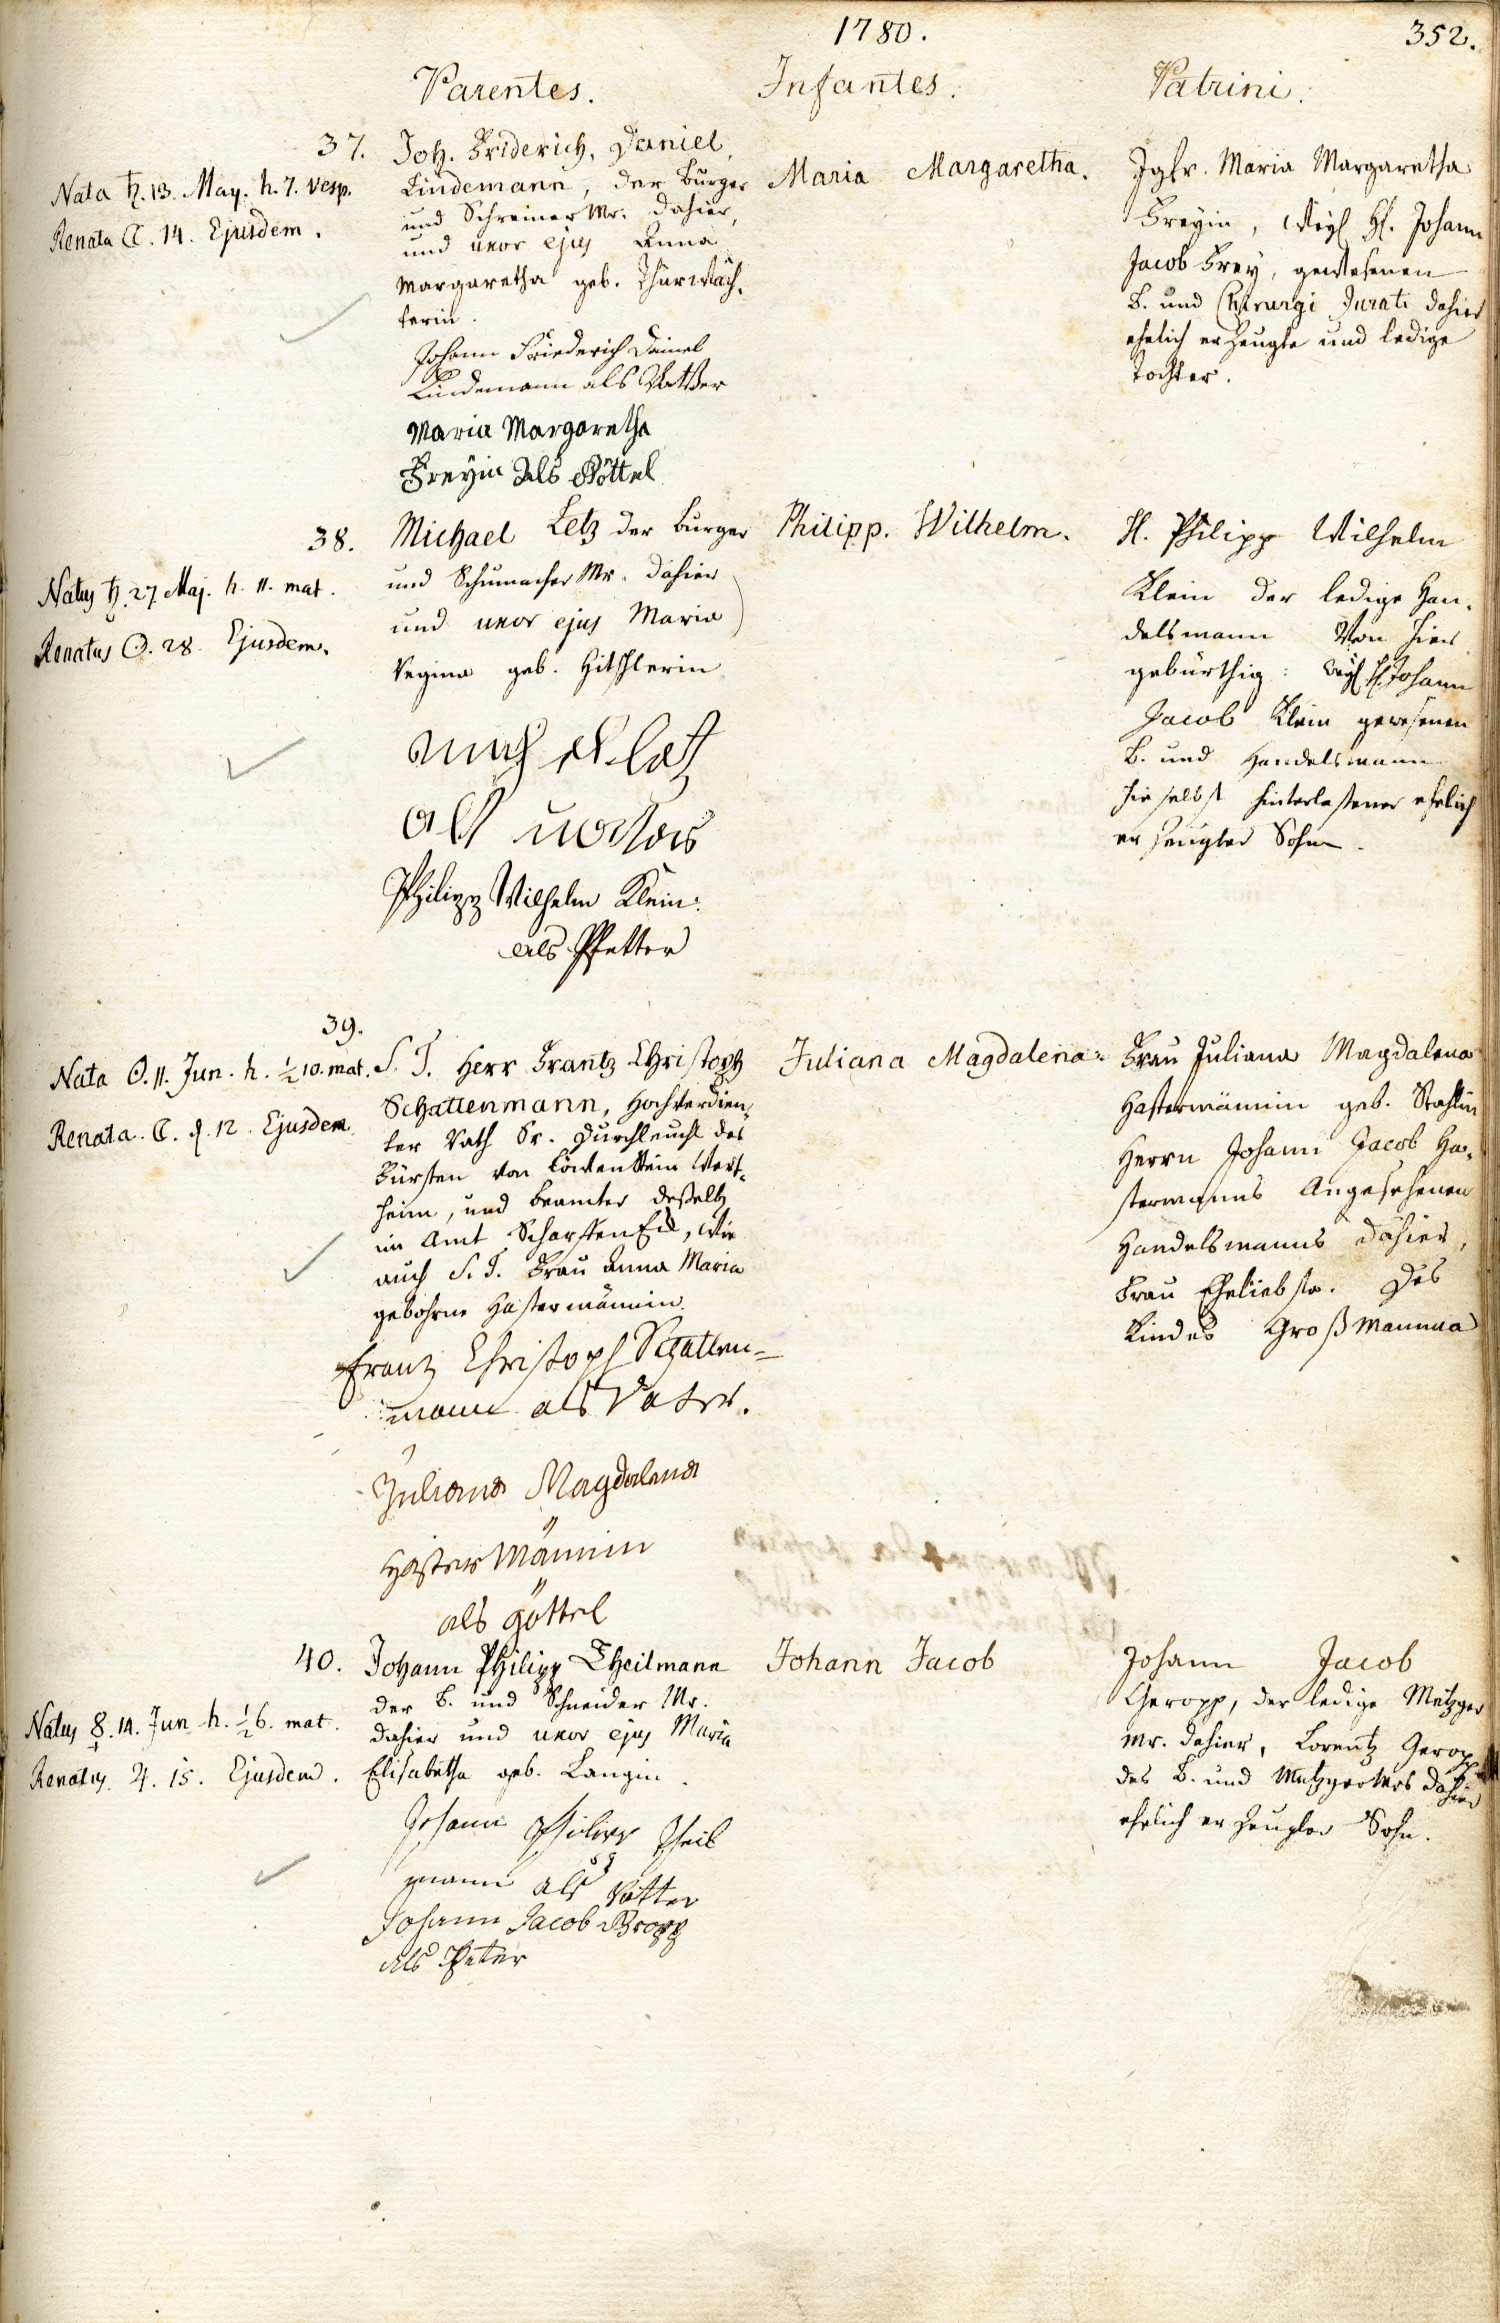 1780.
352.
Parentes.
Infantes.
Patrini.
37.
Nata ♄. 13. May. h. 7. Vesp.
Renata ☾. 14. Ejusdem.
Joh. Friderich, Daniel,
Lindemann, der Burger
und Schreiner Mr. dahier,
und uxor ejus Anna
Margaretha geb. Thürwäch-
terin.
Johann Friederich Dainel
Lindemann als Vatter
Maria Margaretha
Freyin Als Göttel
Maria Margaretha.
Jgfr. Maria Margaretha
Freyin, Weyl. H. Johann
Jacob Frey, gewesenen
B. und Chirurgi Jurati dahier
ehelich erzeugte und ledige
Tochter.
38.
Natus ♄. 27. Maj. h. 11. mat.
Renatus ☉. 28. Ejusdem.
Michael Letz der Burger
und Schumacher Mr. dahier
und uxor ejus Maria
Regina geb. Hitschlerin
als
Philipp Wilhelm Klein.
als Pfetter
Philipp. Wilhelm.
H. Philipp Wilhelm
Klein der ledige Han-
delsmann Von hier
gebürthig: Weyl. H. Johann
Jacob Klein gewesenen
B. und Handelsmann
hieselbst hinterlassener ehelich
erzeugter Sohn.
39.
Nata ☉. 11. Jun. h. ½ 10. mat.
Renata. ☾. d. 12 Ejusdem
S. T. Herr Frantz Christoph
Schattenmann, Hochverdien-
ter Rath Sr. Durchleucht des
Fürsten von Löwenstein Wert-
heim, und Beamter desselb
im Amt Scharffeneck, wie
auch S. T. Frau Anna Maria
gebohrne Hastermännin.
Frantz Christoph Schatten=
mann als Vater.
Juliana Magdalena
Hastermännin
als göttel
Juliana Magdalena.
Frau Juliana Magdalena
Hastermännin geb. Stahlin
Herrn Johann Jacob Ha-
stermanns Angesehenen
Handelsmanns dahier,
Frau Eheliebste. Des
Kindes Großmamma
40.
Natus ☿. 14. Jun. h. ½ 6. mat.
Renatus. ♃. 15. Ejusdem.
Johann Philipp Theilmann
der B. und Schneider Mr.
dahier und uxor ejus Maria
Elisabetha geb. Langin.
Johann Philipp Theil
mann als Vatter
Johann Jacob Gropp
als Peter
Johann Jacob
Johann Jacob
Geropp, der ledige Metzger
Mr. dahier, Lorentz Geropp
des B. und Metzgermrs dahier
ehelich erzeugter Sohn.